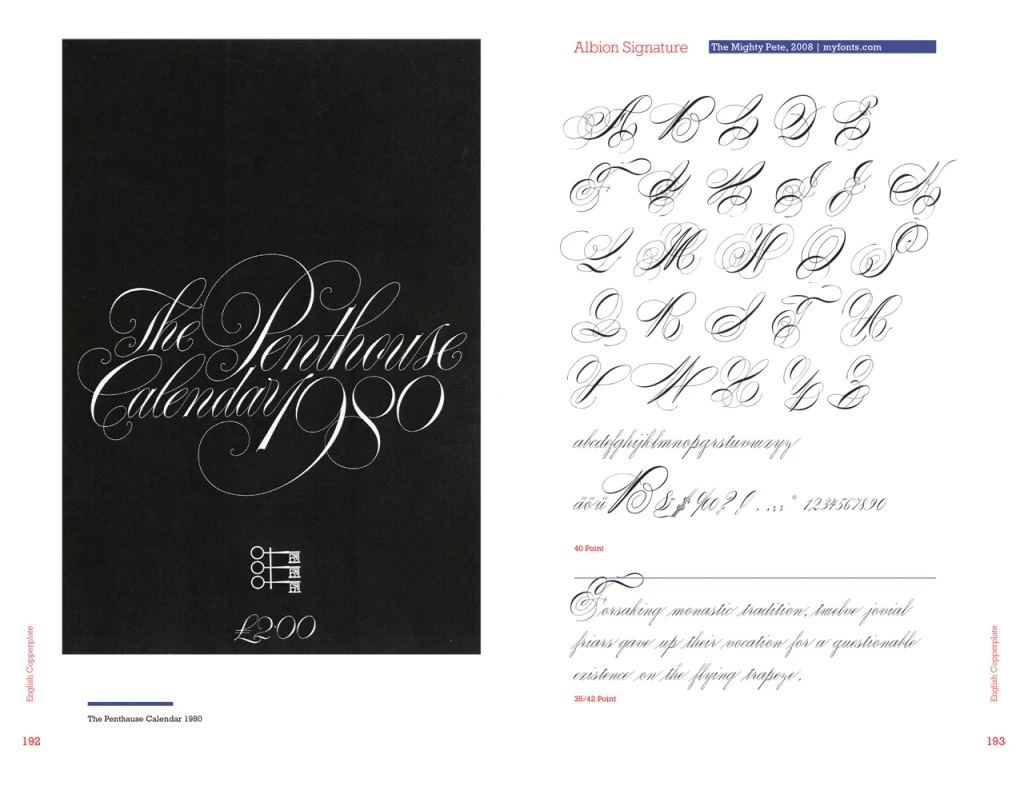 The Penthouse
Calendar 1980
£2·00
English Copperplate
The Penthause Calendar 1980
192
Albion Signature
The Mighty Pete, 2008 | myfonts.com
A B C D E
F G H I J K
L M N O P
Q R S T U
V W X Y Z
abcdefghijklmnopqrstuvwxyz
äöüß&$%?!.,:;* 1234567890
40 Point
Forsaking monastic tradition, twelve jovial
friars gave up their vocation for a questionable
existence on the flying trapeze.
35/42 Point
English Copperplate
193